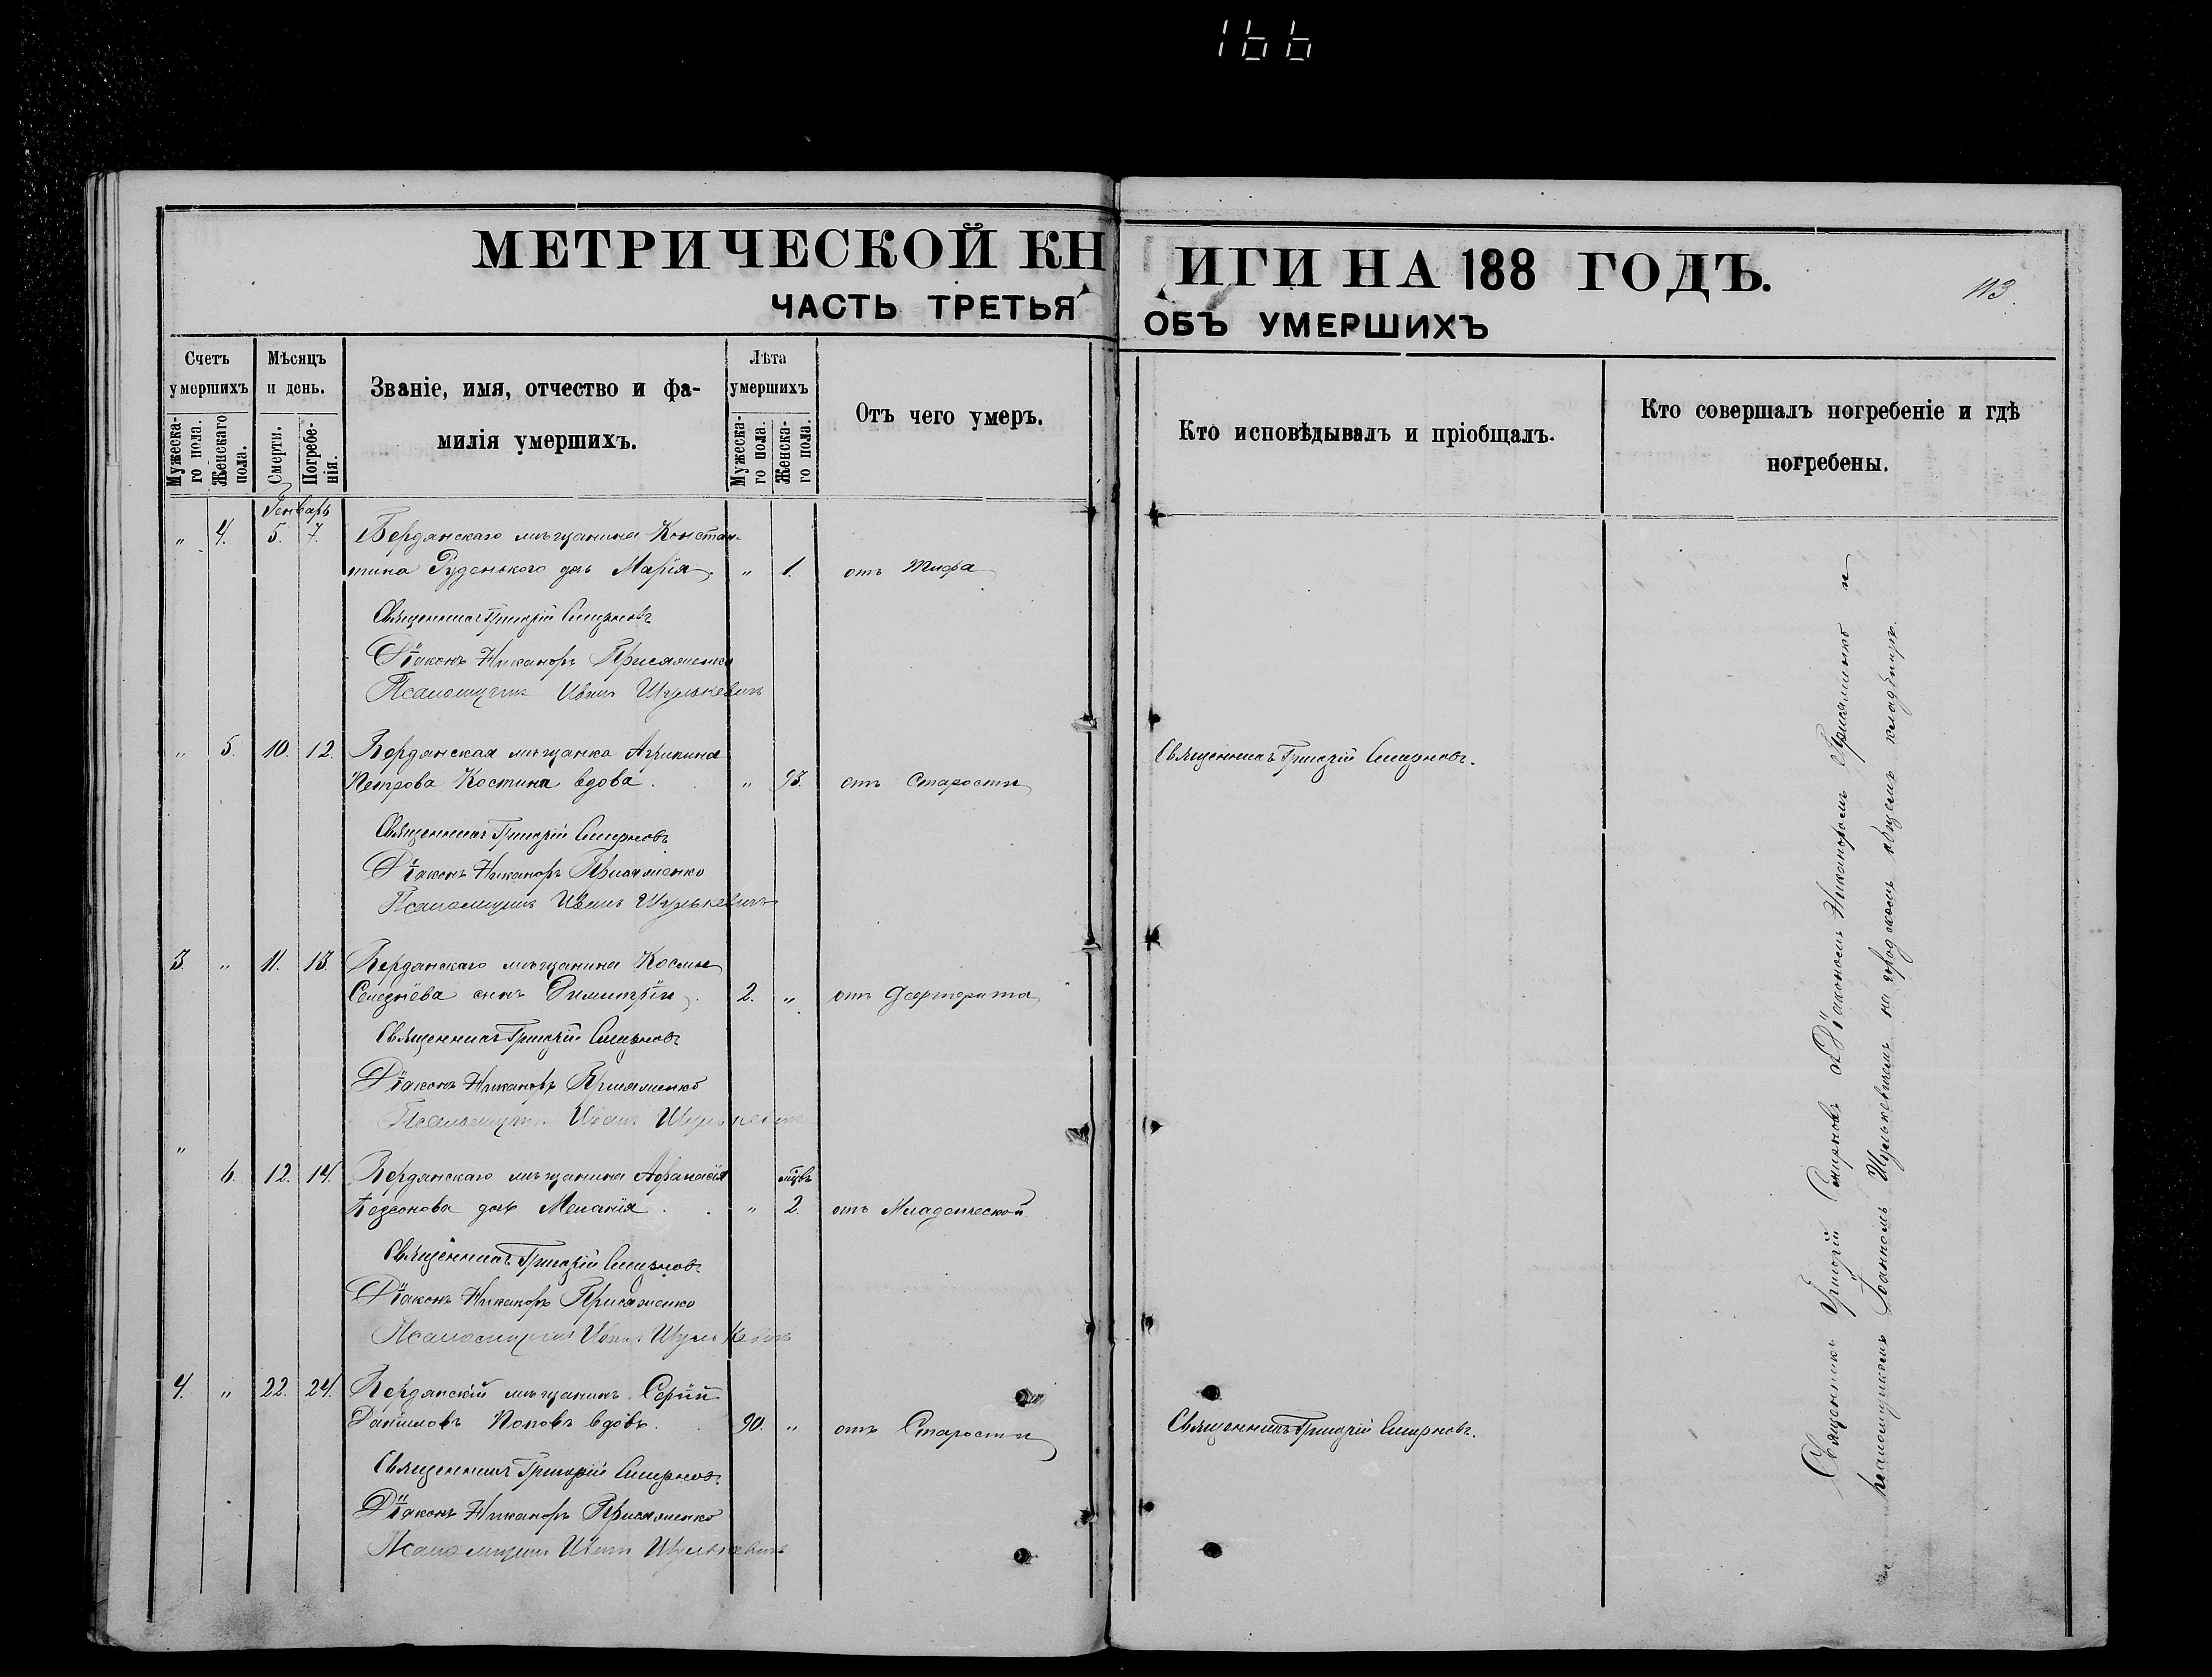 166
МЕТРИЧЕСКОЙ КНИГИ НА 188 ГОДЪ.
113.
ЧАСТЬ ТРЕТЬЯ ОБЪ УМЕРШИХЪ
Счетъ умершихъ
Мужеска-го пола.
Женскаго пола.
Мѣсяцъ и день.
Смерти.
Погребе-нія.
Званіе, имя, отчество и фа-
милія умершихъ.
Лѣта умершихъ
Мужеска-го пола.
Женска-го пола.
Отъ чего умеръ.
Кто исповѣдывалъ и пріобщалъ.
Кто совершалъ погребеніе и гдѣ
погребены.
Генварь
„ 4. 5. 7. Бердянскаго мѣщанина Констан-
тина Руденького дочь Марія. „ 1. отъ Тифа
Священникъ Григорій Смирновъ
Діаконъ Никаноръ Присяженко
Псаломщикъ Иванъ Шулькевичъ
„ 5. 10. 12. Бердянская мѣщанка Агрипина
Петрова Костина вдова. „ 93. отъ Старости
Священникъ Григорій Смирновъ.
Священникъ Григорій Смирновъ
Діаконъ Никаноръ Присяженко
Псаломщикъ Иванъ Шулькевичъ
3. „ 11. 13. Бердянскаго мѣщанина Космы
Селезнёва сынъ Димитрій. 2. „ отъ Дефтерита
Священникъ Григорій Смирновъ
Діаконъ Никаноръ Присяженко
Псаломщикъ Иванъ Шулькевичъ
„ 6. 12. 14. Бердянскаго мѣщанина Афанасія мцвъ
дочь Меланія. „ 2. отъ Младенческой
Священникъ Григорій Смирновъ
Діаконъ Никаноръ Присяженко
Псаломщикъ Иванъ Шулькевичъ
4. „ 22. 24. Бердянскій мѣщанинъ Сергій
Даниловъ Поповъ вдовъ. 90. „ отъ Старости
Священникъ Григорій Смирновъ.
Священникъ Григорій Смирновъ
Діаконъ Никаноръ Присяженко
Псаломщикъ Иванъ Шулькевичъ
Священникъ Григорій Смирновъ съ Діакономъ Никаноромъ Присяженко и
псаломщикомъ Іоанномъ Шулькевичемъ на городскомъ общемъ кладбищѣ.